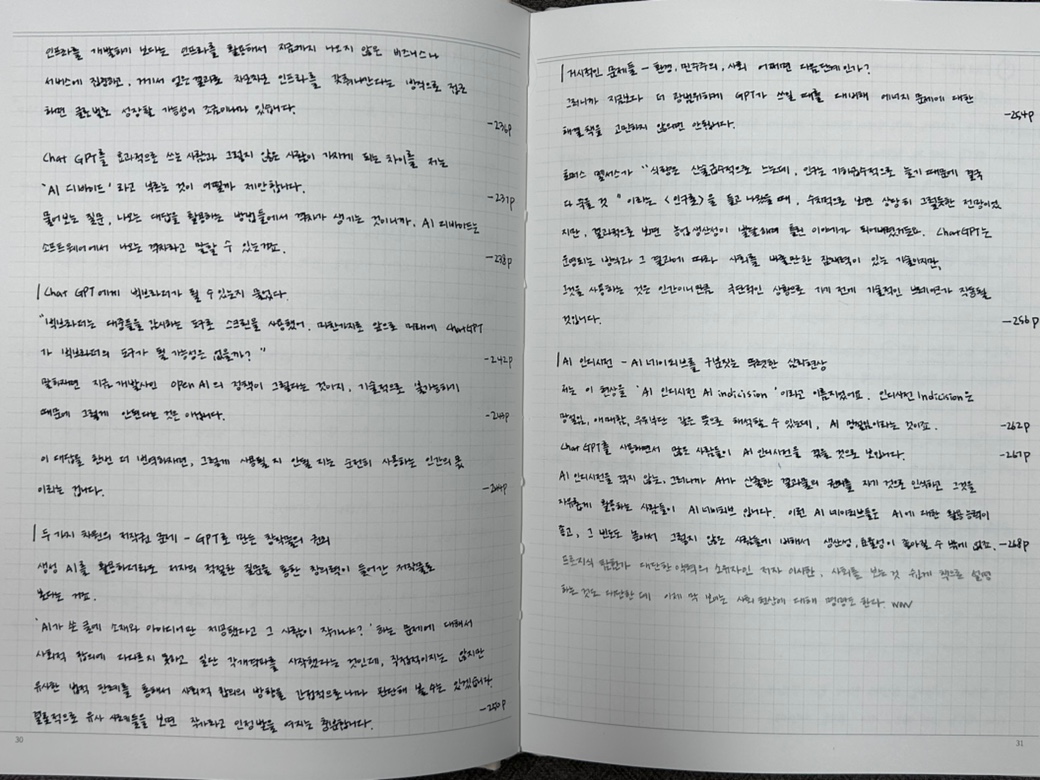 인프라를 개발하기 보다는 인프라를 활용해서 지금까지 나오지 않은 비즈니스나
서비스에 집중하고, 거기서 얻은 결과로 차근차근 인프라를 갖춰나간다는 방식으로 접근
하면 글로벌로 성장할 가능성이 조금이나마 있습니다.
-236p
Chat GPT를 효과적으로 쓰는 사람과 그렇지 않은 사람이 가지게 되는 차이를 저는
'AI 디바이드' 라고 부르는 것이 어떨까 제안합니다.
-237p
물어보는 질문, 나오는 대답을 활용하는 방법들에서 격차가 생기는 것이니까, AI 디바이드는
소프트웨어에서 나오는 격차라고 말할 수 있는거죠.
-238p
Chat GPT에게 빅브라더가 될 수 있는지 물었다.
"빅브라더는 대중들을 감시하는 도구로 스크린을 사용했어. 마찬가지로 앞으로 미래에 ChatGPT
가 빅브라더의 도구가 될 가능성은 없을까? "
-242p
말하자면 지금 개발사인 open AI의 정책이 그렇다는 것이지, 기술적으로 불가능하기
때문에 그렇게 안된다는 것은 아닙니다.
이 대답을 한번 더 번역하자면, 그렇게 사용될 지 안될 지는 순전히 사용하는 인간의 몫
이라는 겁니다.
-244p
두 가지 차원의 저작권 문제 - GPT로 만든 창작물의 권리
생성 AI를 활용하더라도 저자의 적절한 질문을 통한 창의력이 들어간 저작물로
본다는 거죠.
'AI가 쓴 글에 소재와 아이디어만 제공했다고 그 사람이 작가냐?' 하는 문제에 대해서
사회적 합의에 다다르지 못하고 일단 각개격파를 시작했다는 것인데, 직접적이지는 않지만
유사한 법적 판례를 통해서 사회적 합의의 방향을 간접적으로나마 판단해 볼 수는 있겠습니다.
결론적으로 유사 사례들을 보면 작가라고 인정받을 여지는 충분합니다.
-250p
30
거시적인 문제들 - 환경, 민주주의, 사회 어쩌면 다음단계인가?
그러니까 지금보다 더 광범위하게 GPT가 쓰일 때를 대비해 에너지 문제에 대한
해결책을 고민하지 않으면 안됩니다.
-254p
토머스 맬서스가 "식량은 산술급수적으로 느는데, 인구는 기하급수적으로 늘기 때문에 결국
다 죽을 것" 이라는 <인구론>을 들고 나왔을 때, 수치적으로 보면 상당히 그럴듯한 전망이었
지만, 결과적으로 보면 농업 생산성이 발달하며 틀린 이야기가 되어버렸거든요. ChatGPT는
운영되는 방식과 그 결과에 따라 사회를 바꿀만한 잠재력이 있는 기술이지만,
그것을 사용하는 것은 인간이니만큼 극단적인 상황으로 가기 전에 기술적인 브레이크가 작동될
것입니다.
-256p
AI 인디시전 - AI 네이티브를 구분짓는 뚜렷한 심리현상
저는 이 현상을 'AI 인디시전 AI indicision' 이라고 이름지었어요. 인디시전 Indicision은
망설임, 애매함, 우유부단 같은 뜻으로 해석할 수 있는데, AI 망설임이라는 것이죠.
-262p
Chat GPT를 사용하면서 많은 사람들이 AI 인디시전을 겪을 것으로 보입니다.
-267p
AI 인디시전을 겪지 않는, 그러니까 AI가 산출한 결과물의 권리를 자기 것으로 인식하고 그것을
자유롭게 활용하는 사람들이 AI 네이티브 입니다. 이런 AI 네이티브들은 AI에 대한 활용능력이
좋고, 그 빈도도 높아서 그렇지 않은 사람들에 비해서 생산성, 효율성이 좋아질 수 밖에 없죠. -268p
대단한 이력의 소유자인 저자 이시한, 사회를 보는 것 쉽게 책으로 설명
하는 것도 대단한데 이제 막 보이는 사회현상에 대해 명명도 한다. wow
31